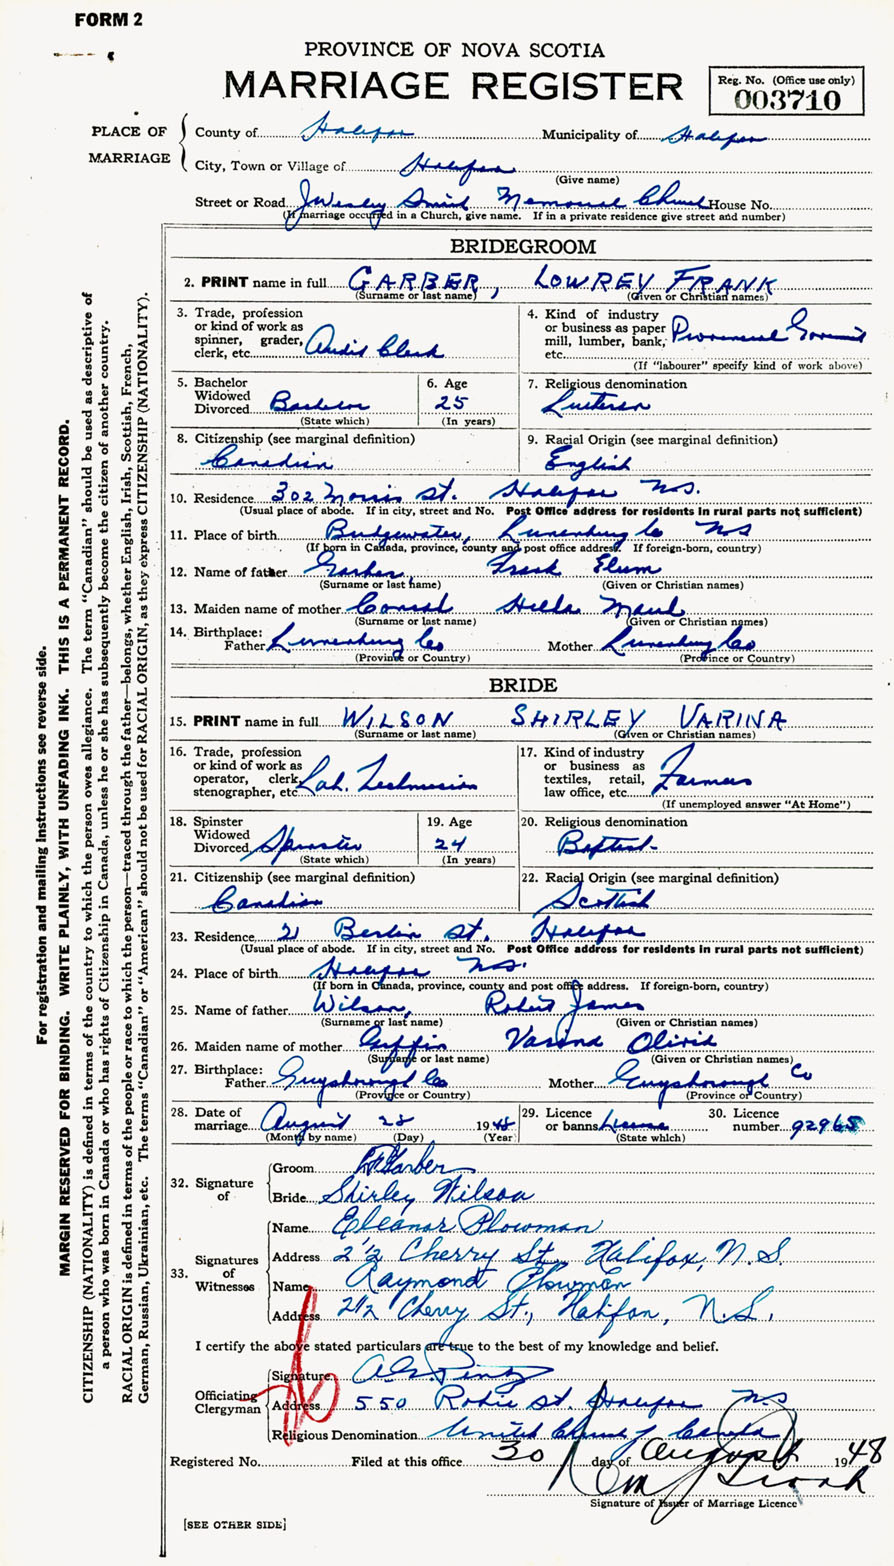 FORM 2
PROVINCE OF NOVA SCOTIA
MARRIAGE REGISTER
Reg. No. (Office use only)
003710
PLACE OF MARRIAGE
County of Halifax Municipality of Halifax
City, Town or Village of Halifax
(Give name)
Street or Road J Wesley Smith Memorial Church House No.
(If marriage occurred in a Church, give name. If in a private residence give street and number)
BRIDEGROOM
2. PRINT name in full GARBER, LOWREY FRANK
(Surname or last name) (Given or Christian names)
3. Trade, profession or kind of work as spinner, grader, clerk, etc. Audit Clerk
4. Kind of industry or business as paper mill, lumber, bank, etc. Provincial
(If "labourer" specify kind of work above)
5. Bachelor Widowed Divorced Bachelor
(State which)
6. Age 25
(In years)
7. Religious denomination
Lutheran
8. Citizenship (see marginal definition)
Canadian
9. Racial Origin (see marginal definition)
English
10. Residence 302 Morris St. Halifax N.S.
(Usual place of abode. If in city, street and No. Post Office address for residents in rural parts not sufficient)
11. Place of birth Bridgewater, Lunenburg Co NS
(If born in Canada, province, county and post office address. If foreign-born, country)
12. Name of father Garber, Frank Elum
(Surname or last name) (Given or Christian names)
13. Maiden name of mother Conrad Hilda Maud
(Surname or last name) (Given or Christian names)
14. Birthplace:
Father Lunenburg Co Mother Lunenburg Co
(Province or Country) (Province or Country)
BRIDE
15. PRINT name in full WILSON SHIRLEY VARINA
(Surname or last name) (Given or Christian names)
16. Trade, profession or kind of work as operator, clerk, stenographer, etc. Lab. Technician
17. Kind of industry or business as textiles, retail, law office, etc.
(If unemployed answer "At Home")
18. Spinster Widowed Divorced Spinster
(State which)
19. Age 24
(In years)
20. Religious denomination
Baptist
21. Citizenship (see marginal definition)
Canadian
22. Racial Origin (see marginal definition)
Scottish
23. Residence 21 Berlin St. Halifax
(Usual place of abode. If in city, street and No. Post Office address for residents in rural parts not sufficient)
24. Place of birth Halifax N.S.
(If born in Canada, province, county and post office address. If foreign-born, country)
25. Name of father Wilson, Robert James
(Surname or last name) (Given or Christian names)
26. Maiden name of mother Giffin Varina
(Surname or last name) (Given or Christian names)
27. Birthplace:
Father Guysborough Co Mother Guysborough Co
(Province or Country) (Province or Country)
28. Date of marriage August 28 1948
(Month by name) (Day) (Year)
29. Licence or banns License
(State which)
30. Licence number 92965
32. Signature of
Groom Garber
Bride Shirley Wilson
33. Signatures of Witnesses
Name Eleanor Plowman
Address 2 1/2 Cherry St., Halifax, N.S.
Name Raymond Plowman
Address 2 1/2 Cherry St., Halifax, N.S.
I certify the above stated particulars are true to the best of my knowledge and belief.
Officiating Clergyman
Signature
Address 550 St. Halifax N.S
Religious Denomination United Church of Canada
Registered No. Filed at this office 30 day of August 1948
Signature of Issuer of Marriage Licence
[SEE OTHER SIDE]
For registration and mailing instructions see reverse side.
MARGIN RESERVED FOR BINDING. WRITE PLAINLY, WITH UNFADING INK. THIS IS A PERMANENT RECORD.
CITIZENSHIP (NATIONALITY) is defined in terms of the country to which the person owes allegiance. The term "Canadian" should be used as descriptive of
a person who was born in Canada or who has rights of Citizenship in Canada, unless he or she has subsequently become the citizen of another country.
RACIAL ORIGIN is defined in terms of the people or race to which the person—traced through the father—belongs, whether English, Irish, Scottish, French,
German, Russian, Ukrainian, etc. The terms "Canadian" or "American" should not be used for RACIAL ORIGIN, as they express CITIZENSHIP (NATIONALITY).